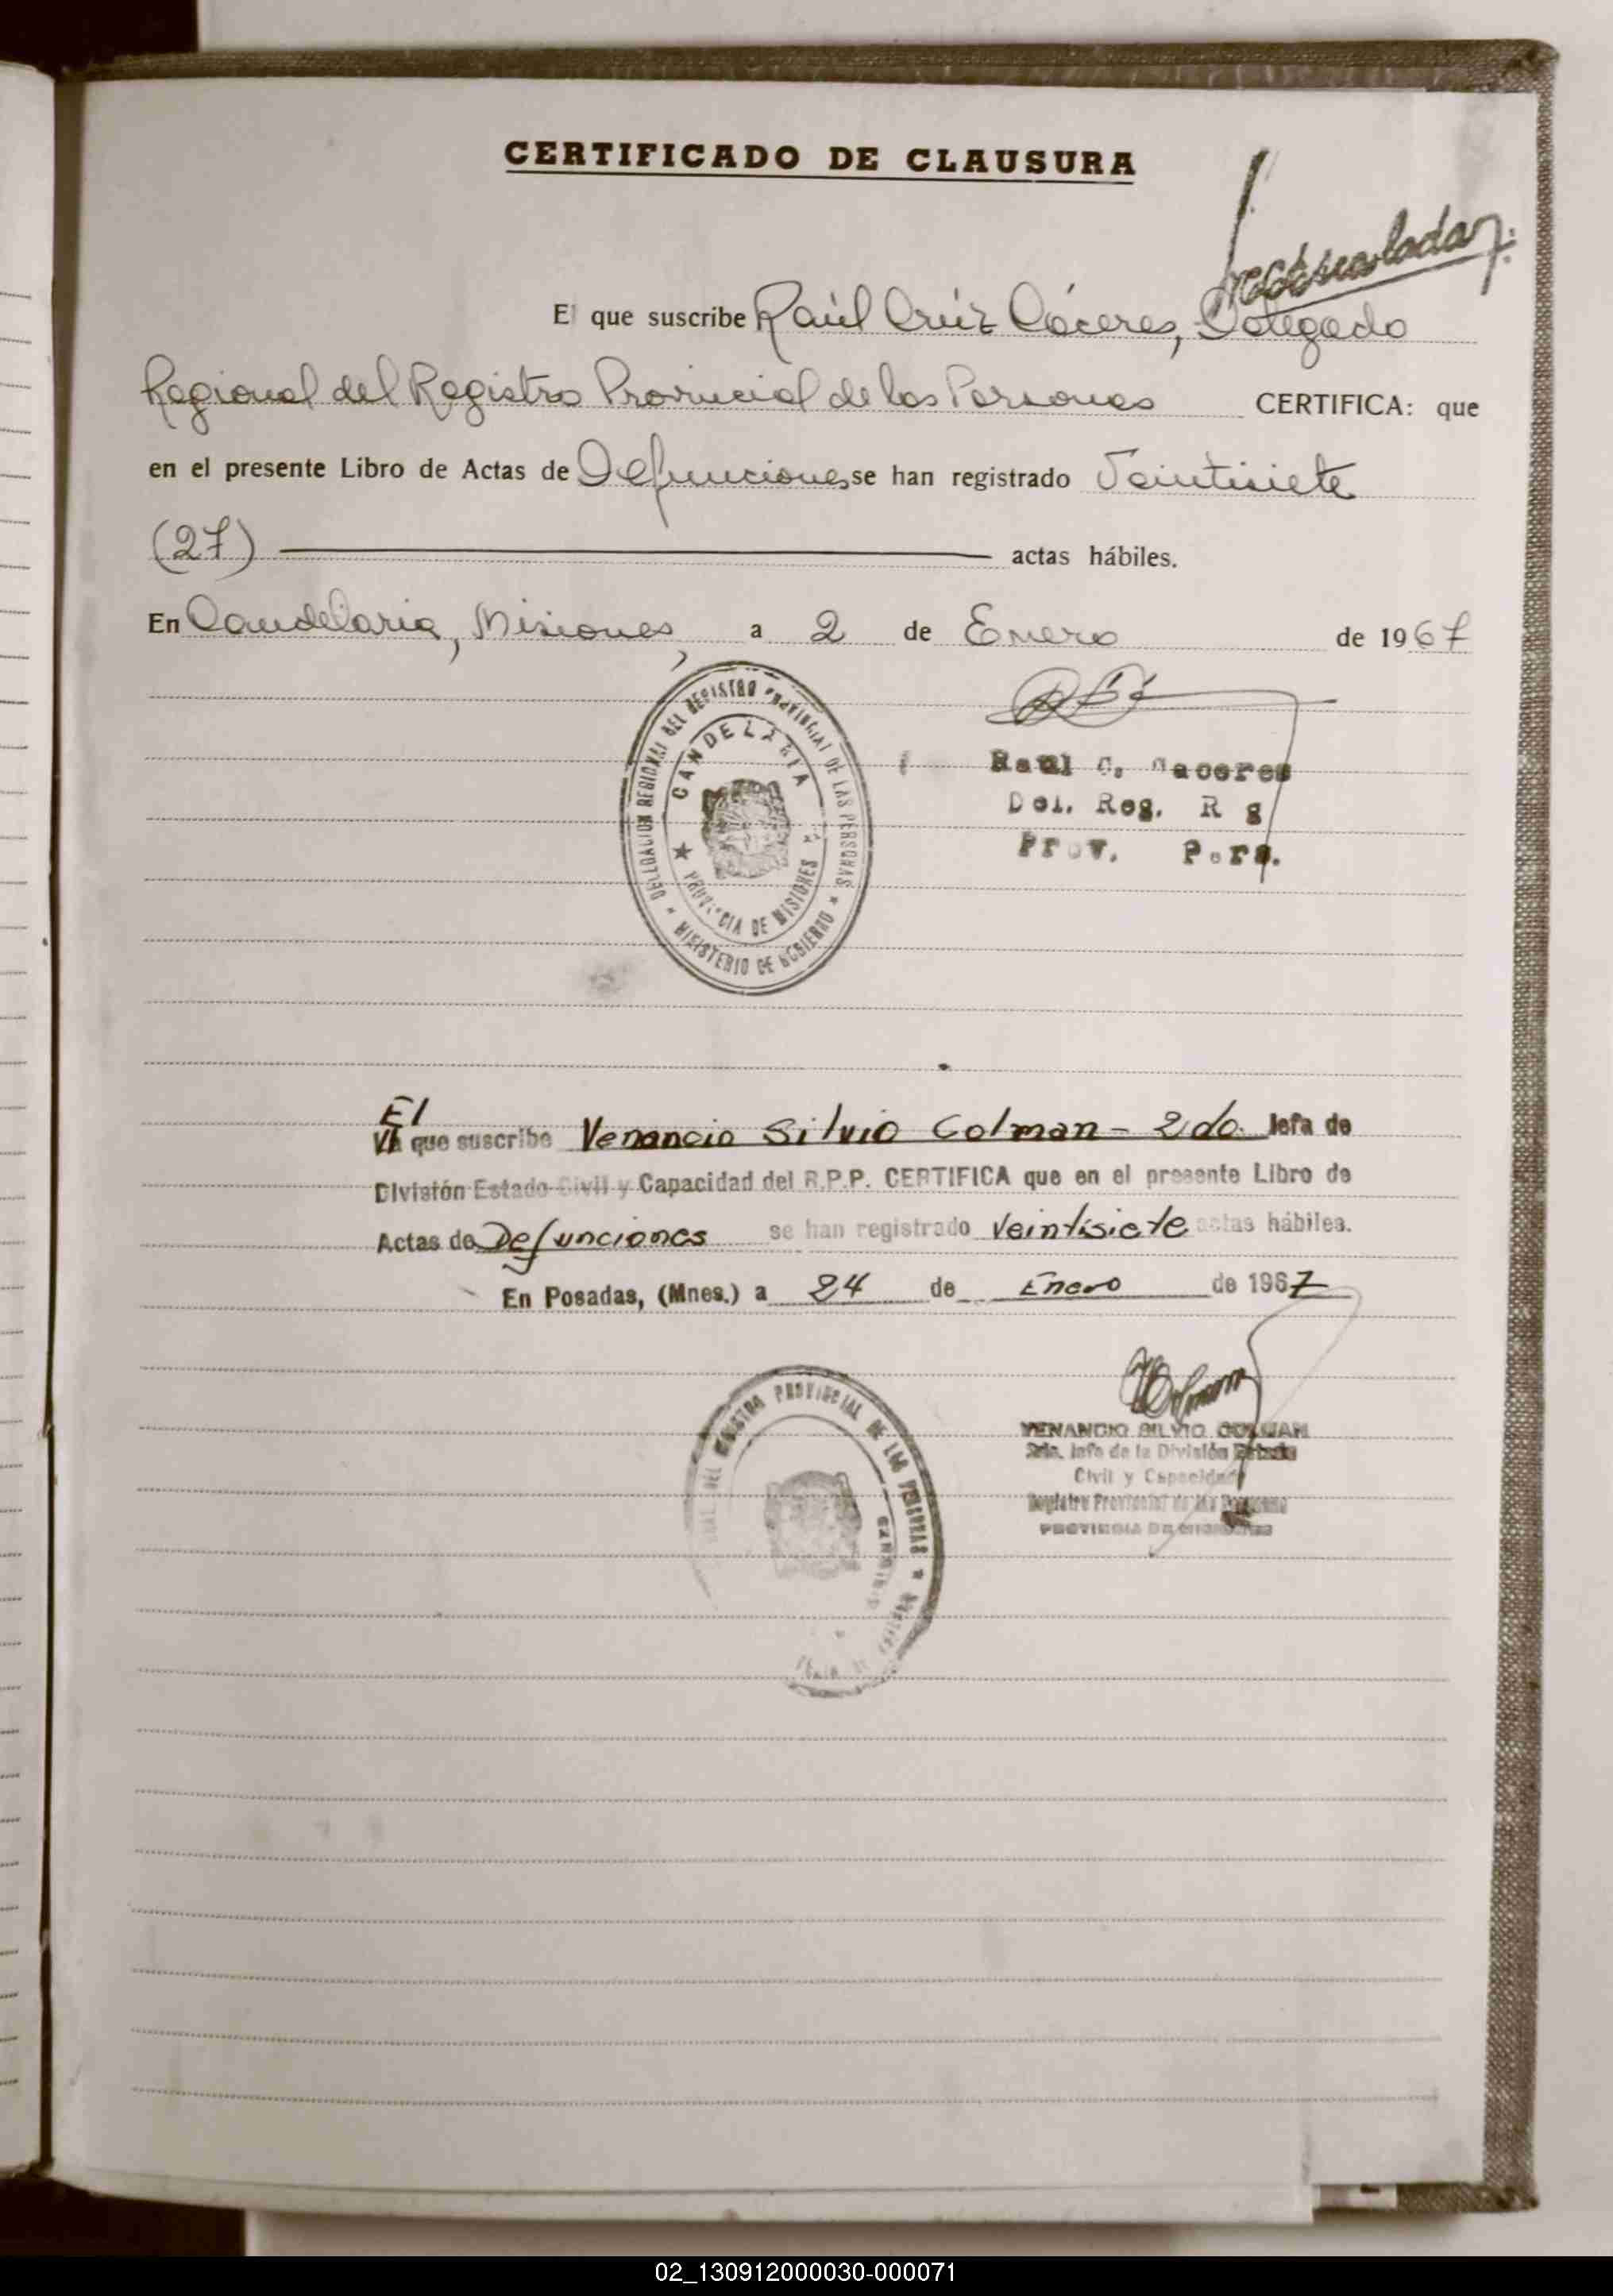 CERTIFICADO DE CLAUSURA
El que suscribe Raúl Crúz Cáceres, Delegado
Regional del Registro Provincial de las Personas CERTIFICA: que
en el presente Libro de Actas de Defunciones se han registrado Veintisiete
(27) actas hábiles.
En Candelaria, Misiones, a 2 de Enero de 1967
DELEGACION REGIONAL DEL REGISTRO PROVINCIAL DE LAS PERSONAS
CANDELARIA
PROVINCIA DE MISIONES
MINISTERIO DE GOBIERNO
Raul C. Caceres
Del. Reg. R g
Prov. Pers.
El
que suscribe Venancio Silvio Colman - 2do. Jefa de
División Estado Civil y Capacidad del R.P.P. CERTIFICA que en el presente Libro de
Actas de Defunciones se han registrado Veintisiete actas hábiles.
En Posadas, (Mnes.) a 24 de Enero de 1967
VENANCIO SILVIO COLMAN
Jefe de la División Estado
Civil y Capacidad
Registro Provincial de las Personas
PROVINCIA DE MISIONES
PROVINCIAL DE LAS PERSONAS
02_130912000030-000071